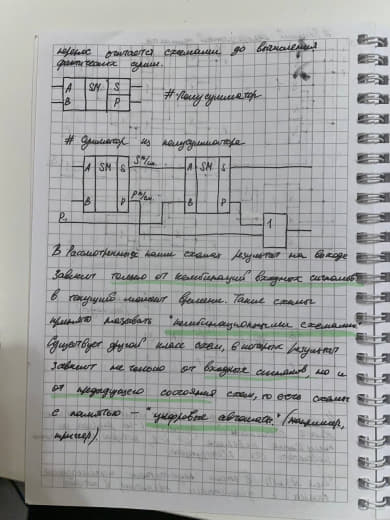 перенос считается схемами до вычисления
фактических сумм.
A SM S
B P
# Полусумматор
# Сумматор из полусумматора
A SM S
B P
A SM S
B P
P
1
В рассмотренных нами схемах результат на выходе
зависит только от комбинаций входных сигналов
в текущий момент времени. Такие схемы
принято называть "комбинационными схемами"
Существует другой класс схем, в которых результат
зависит не только от входных сигналов, но и
от предыдущего состояния схем, то есть схемы
с памятью – "цифровые автоматы." (например,
триггер)